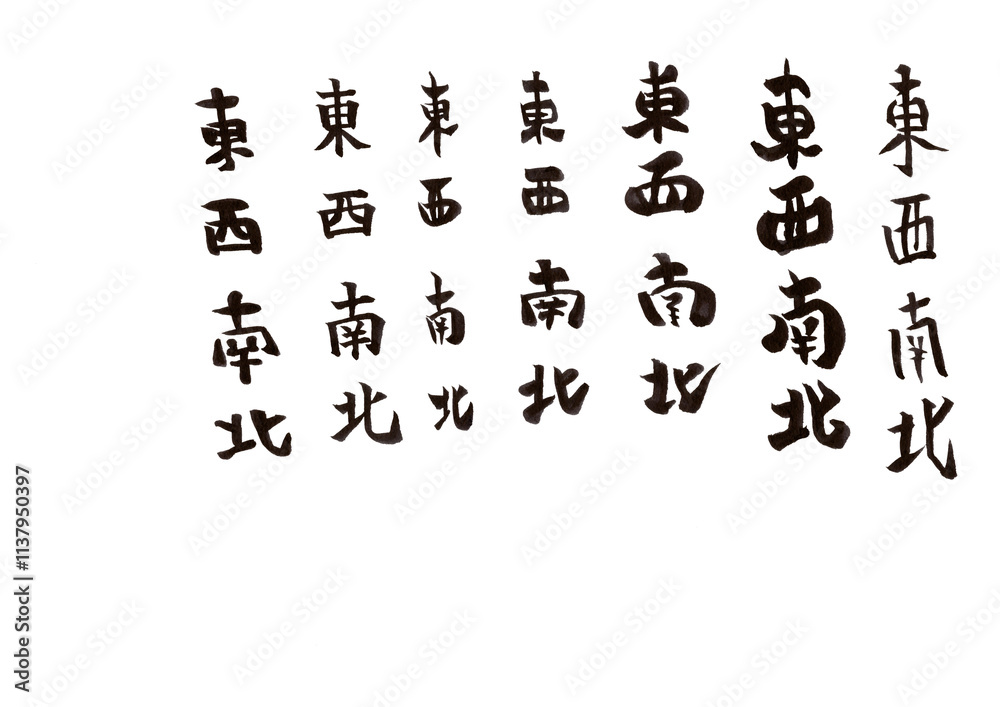 東西南北
東西南北
東西南北
東西南北
東西南北
東西南北
東西南北
Adobe Stock | #1137950397